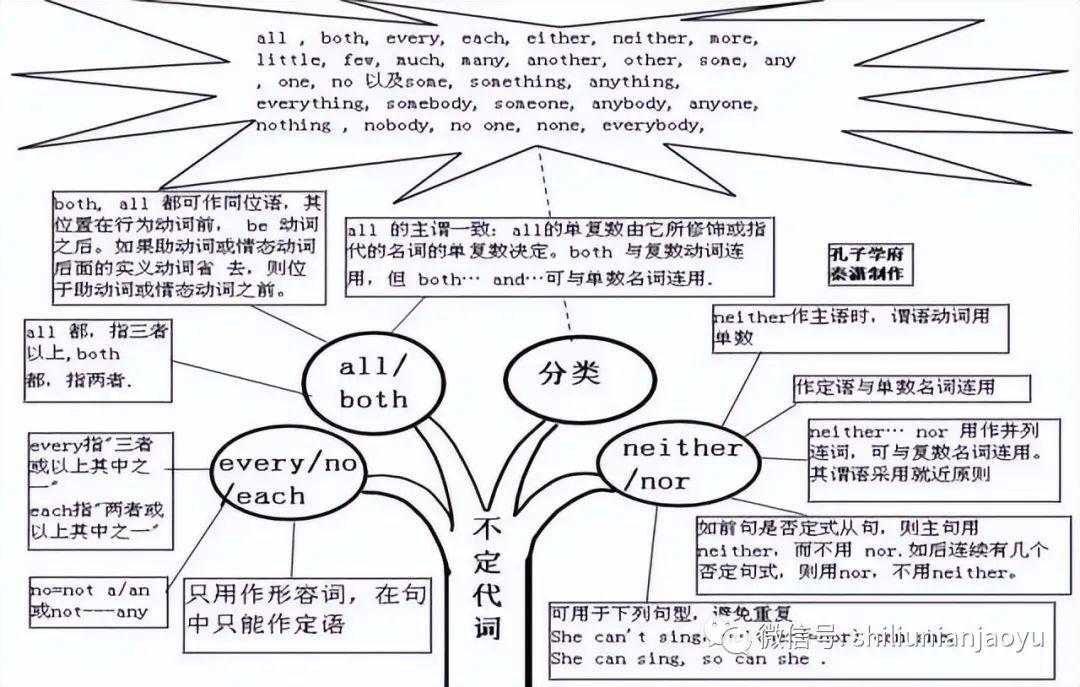 all , both, every, each, either, neither, more,
little, few, much, many, another, other, some, any
, one, no 以及some, something, anything,
everything, somebody, someone, anybody, anyone,
nothing , nobody, no one, none, everybody,
both, all 都可作同位语，其
位置在行为动词前， be 动词
之后。如果助动词或情态动词
后面的实义动词省 去，则位
于助动词或情态动词之前。
all 的主谓一致：all的单复数由它所修饰或指
代的名词的单复数决定。both 与复数动词连
用，但 both… and…可与单数名词连用.
孔子学府
秦潇制作
all 都，指三者
以上,both
都，指两者.
all/
both
分类
neither作主语时，谓语动词用
单数
作定语与单数名词连用
every指"三者
或以上其中之
一"
each指"两者或
以上其中之一"
every/no
/each
neither
/nor
neither… nor 用作并列
连词，可与复数名词连用。
其谓语采用就近原则
不定代词
如前句是否定式从句，则主句用
neither，而不用 nor.如后连续有几个
否定句式，则用nor，不用neither。
no=not a/an
或not---any
只用作形容词，在句
中只能作定语
可用于下列句型，避免重复
She can't sing,
She can sing, so can she .
微信号: shiliunianjiaoyu